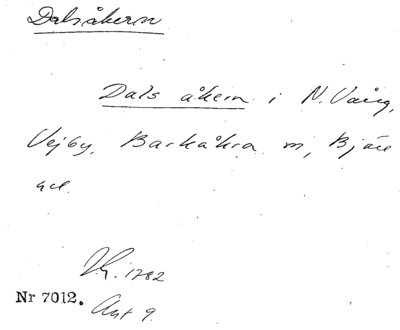 Dalsåkern
Dals åkern i N. Vång,
Vejby, Barkåkra sn, Bjäre
hd.
1782
Nr 7012. Akt 9.